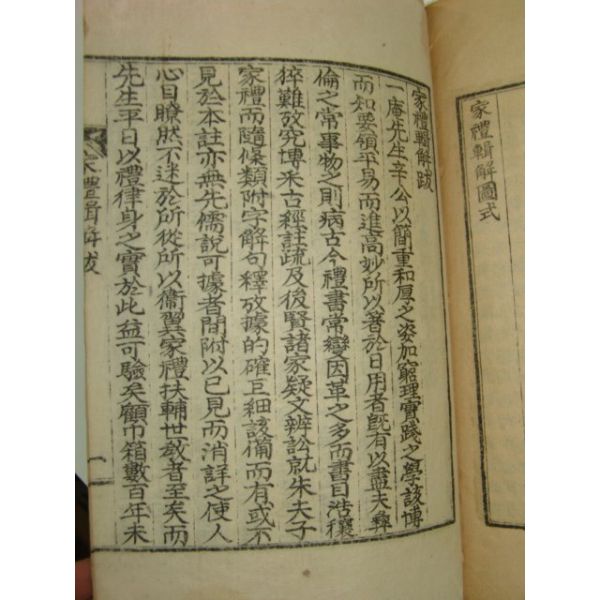 家禮輯解圖式
家禮輯解跋
一庵先生辛公以簡重和厚之姿加窮理實踐之學該博
而知要領平易而進高妙所以著於日用者旣有以盡夫彝
倫之常事物之則病古今禮書常變因革之多而書目浩穰
猝難攷究博采古經註疏及後賢諸家疑文辨訟就朱夫子
家禮而隨條類附字解句釋攷據的確巨細該備而有或不
見於本註亦無先儒說可據者間附以已見而消詳之使人
心目瞭然不迷於所從所以衛翼家禮扶輔世敎者至矣而
先生平日以禮律身之實於此益可驗矣顧巾箱數百年未
家禮輯解跋 一